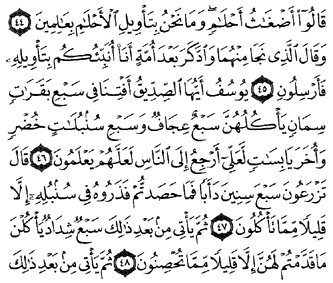 قَالُوٓا۟ أَضْغَٰثُ أَحْلَٰمٍ ۖ وَمَا نَحْنُ بِتَأْوِيلِ ٱلْأَحْلَٰمِ بِعَٰلِمِينَ ٤٤
وَقَالَ ٱلَّذِى نَجَا مِنْهُمَا وَٱدَّكَرَ بَعْدَ أُمَّةٍ أَنَا۠ أُنَبِّئُكُم بِتَأْوِيلِهِۦ
فَأَرْسِلُونِ ٤٥ يُوسُفُ أَيُّهَا ٱلصِّدِّيقُ أَفْتِنَا فِى سَبْعِ بَقَرَٰتٍ
سِمَانٍ يَأْكُلُهُنَّ سَبْعٌ عِجَافٌ وَسَبْعِ سُنۢبُلَٰتٍ خُضْرٍ
وَأُخَرَ يَابِسَٰتٍ لَّعَلِّىٓ أَرْجِعُ إِلَى ٱلنَّاسِ لَعَلَّهُمْ يَعْلَمُونَ ٤٦ قَالَ
تَزْرَعُونَ سَبْعَ سِنِينَ دَأَبًا فَمَا حَصَدتُّمْ فَذَرُوهُ فِى سُنۢبُلِهِۦٓ إِلَّا
قَلِيلًا مِّمَّا تَأْكُلُونَ ٤٧ ثُمَّ يَأْتِى مِنۢ بَعْدِ ذَٰلِكَ سَبْعٌ شِدَادٌ يَأْكُلْنَ
مَا قَدَّمْتُمْ لَهُنَّ إِلَّا قَلِيلًا مِّمَّا تُحْصِنُونَ ٤٨ ثُمَّ يَأْتِى مِنۢ بَعْدِ ذَٰلِكَ